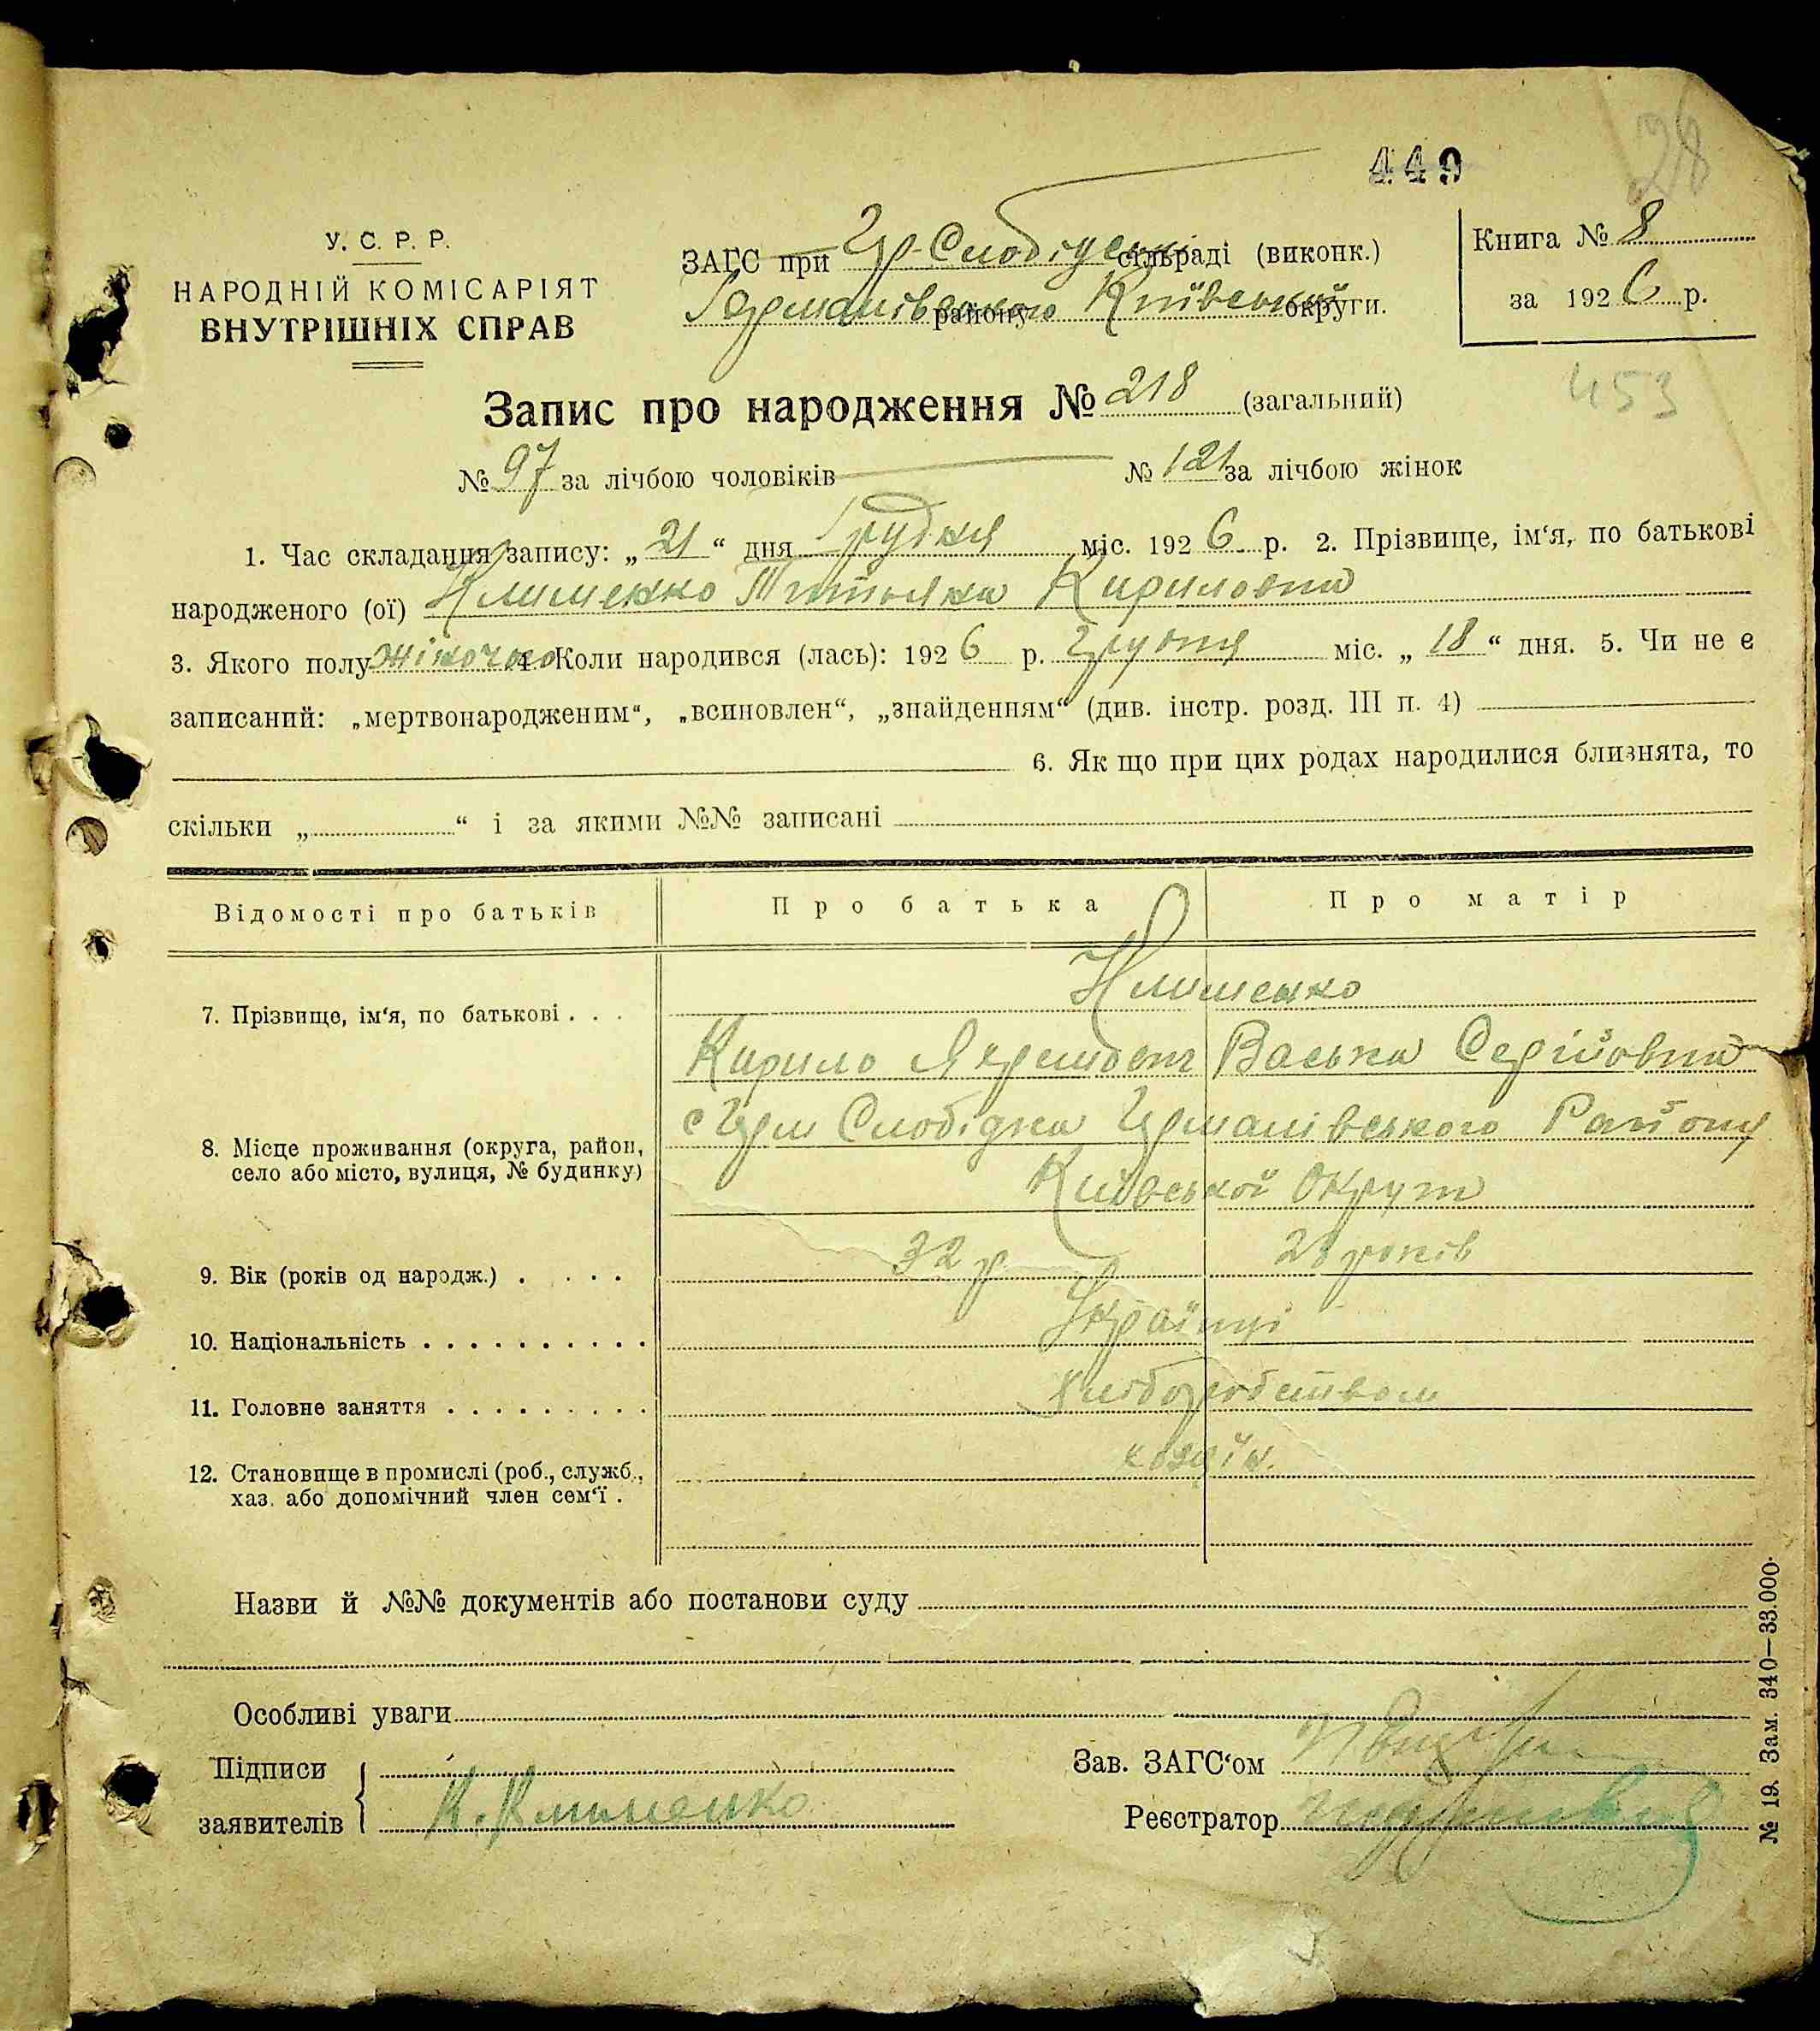 449
28
У. С. Р. Р.
НАРОДНІЙ КОМІСАРІЯТ
ВНУТРІШНІХ СПРАВ
ЗАГС при Гр-Слобідській сільраді (виконк.)
Германівського району Київської округи.
Книга № 8
за 1926 р.
453
Запис про народження № 218 (загальний)
№ 97 за лічбою чоловіків № 121 за лічбою жінок
1. Час складання запису: „21“ дня Грудня міс. 1926 р. 2. Прізвище, ім‘я, по батькові
народженого (ої) Клименко Титьяна Кириловна
3. Якого полу жіночого 4. Коли народився (лась): 1926 р. Грудня міс. „18“ дня. 5. Чи не є
записаний: „мертвонародженим“, „всиновлен“, „знайденням“ (див. інстр. розд. III п. 4)
6. Як що при цих родах народилися близнята, то
скільки „ “ і за якими №№ записані
Відомості про батьків Про батька Про матір
7. Прізвище, ім‘я, по батькові . . . Клименко
Кирило Васька Сергійовна
8. Місце проживання (округа, район,
село або місто, вулиця, № будинку)
с Герм Слобідка Германівського Району
Київської Округи
9. Вік (років од народж.) . . . . . 32 р 28 років
10. Національність . . . . . . . . . . Українці
11. Головне заняття . . . . . . . . . хліборобством
12. Становище в промислі (роб., служб.,
хаз. або допомічний член сем‘ї .
хозяїн.
Назви й №№ документів або постанови суду
Особливі уваги
Підписи
заявителів
К. Клименко
Зав. ЗАГС‘ом
Реєстратор
№ 19. Зам. 340—33.000.